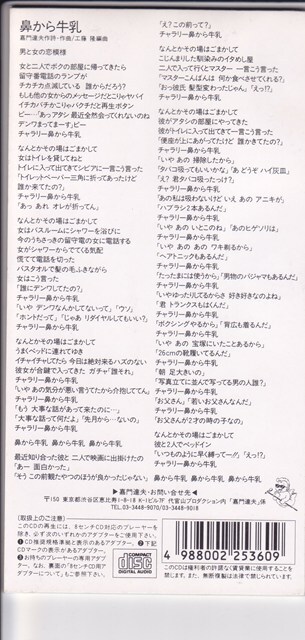 鼻から牛乳
嘉門達夫作詩・作曲/工藤 隆編曲
男と女の恋模様
女と二人でボクの部屋に帰ってきたら
留守番電話のランプが
チカチカ点滅している 誰からだろう?
もしも他の女からのメッセージだとこりゃヤバイ
イチカバチかこりゃバクチだと再生ボタン
ピー…「あっアタシ 最近全然会ってくれないのね
デンワまってまーす」ピー
チャラリー鼻から牛乳
なんとかその場はごまかして
女はトイレを貸してねと
トイレに入って出てきてシビアに一言こう言った
「トイレットペーパー三角に折ってあったけど
誰か来てたの?」
チャラリー鼻から牛乳
「あっ あれ オレが折ってん」
なんとかその場はごまかして
女はバスルームにシャワーを浴びに
今のうちさっきの留守電の女に電話する
女がシャワーからでてくる気配
慌てて電話を切った
バスタオルで髪の毛ふきながら
女はこう言った
「誰にデンワしてたの?」
チャラリー鼻から牛乳
「いや デンワなんかしてないって」「ウソ」
「ホントだって」「じゃあ リダイヤルしてもいい?」
チャラリー鼻から牛乳
なんとかその場はごまかして
うまくベッドに連れてゆき
イチャイチャしてたら 今日は絶対来るハズのない
彼女が合鍵で入ってきた ガチャ「誰それ」
チャラリー鼻から牛乳
「いや あの気分が悪い言うてたから介抱しててん」
チャラリー鼻から牛乳
「もう 大事な話があって来たのに…」
「大事な話って何だよ」「先月から…ないの」
チャラリー鼻から牛乳
鼻から牛乳 鼻から牛乳 鼻から牛乳
最近知り合った彼と 二人で映画に出掛けたの
「あー 面白かった」
「そうこの前観たやつのほうが良かったじゃない」
「え?この前って?」
チャラリー鼻から牛乳
なんとかその場はごまかして
こじんまりした馴染みのイタめし屋
二人で入って行くとマスター 一言こう言った
「マスターこんばんは 何か食べさせてくれる?」
「お っ彼氏 髪型変わったじゃん」「えっ!?」
チャラリー鼻から牛乳
なんとかその場はごまかして
彼がアタシの部屋にやってきた
彼がトイレに入って出てきて一言こう言った
「便座が上にあがってたけど 誰かきてたの?」
チャラリー鼻から牛乳
「いや あの 掃除したから」
「タバコ吸ってもいいかな」「あ どうぞ ハイ灰皿」
「え? 君タバコ吸ったっけ?」
チャラリー鼻から牛乳
「あの私は吸わないけど いえ あの アニキが」
「ハブラシ2本あるんだ」
チャラリー鼻から牛乳
「いや あの いとこのね」「あのヒゲソリは」
チャラリー鼻から牛乳
「いや あの あの ワキ剃るから」
「ヘアトニックもあるんだ」
チャラリー鼻から牛乳
「たったまには使うから」「男物のパジャマもあるんだ」
チャラリー鼻から牛乳
「いやゆったりしてるからさ 好き好きなのよね」
「君 トランクスもはくんだ」
チャラリー鼻から牛乳
「ボクシングやるから」「背広も着るんだ」
チャラリー鼻から牛乳
「いや あの 宝塚にいたことあるから」
「26cmの靴履いてるんだ」
チャラリー鼻から牛乳
「朝 足大きいの」
「写真立てに並んで写ってる男の人誰?」
チャラリー鼻から牛乳
「お父さん」「若いお父さんなんだ」
チャラリー鼻から牛乳
「お父さんが2才の時の子なの」
なんとかその場はごまかして
彼と2人でベッドイン
「いつものように早く縛って…ハ!」「えっ!?」
チャラリー鼻から牛乳
鼻から牛乳 鼻から牛乳 鼻から牛乳
▶嘉門達夫・お問い合せ先◀
〒150 東京都渋谷区恵比寿1-8-18 K-1ビル7F 代官山プロダクション内「嘉門達夫」係
TEL.03-3448-9070/03-3448-9018
〔取扱上のご注意〕
●このCDの再生には、8センチCD対応のプレーヤーを除き、必ず次のいずれかのアダプターをご使用下さい。
COMPACT
disc
DIGITAL AUDIO
4 988002 253609
●このCDは権利者の許諾なく賃貸業に使用することを禁じます。また、無断複製は法律で禁じられています。